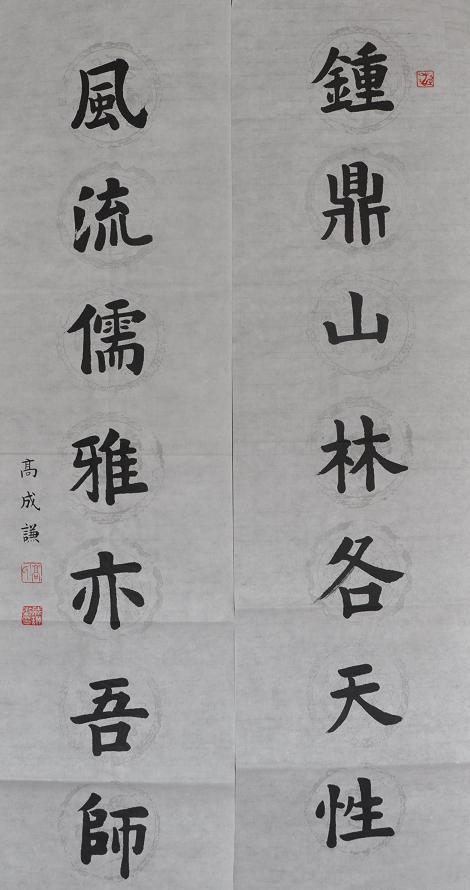 鍾鼎山林各天性
風流儒雅亦吾師
高成謙